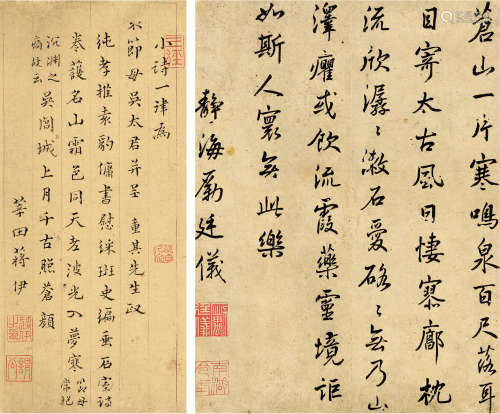 蒼山一片寒鳴泉百尺落耳
目寄太古風日悽寥廓枕
流欣潺〻漱石愛硌〻無乃山
澤癯或飲流霞藥靈境詎
如斯人寰無此樂
靜海勵廷儀
小詩一律為
節母吳太君并呈 重其先生政
純孝推袁豹傭書慰綵斑史編垂石室詩
卷護名山霜色同天老波光入夢寒 節母常抱
沉淵之痛故云 吳閶城上月千古照蒼顏
莘田蔣伊